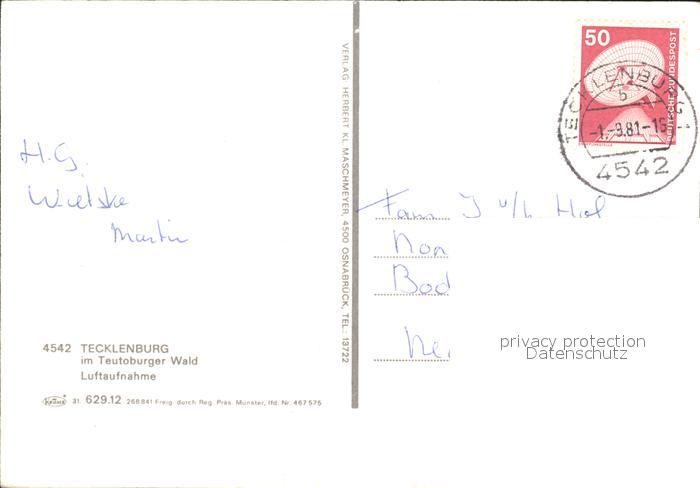 H.G.
Martin
4542 TECKLENBURG
im Teutoburger Wald
Luftaufnahme
Krüger 31. 629.12 268 841 Freig. durch Reg. Präs. Münster, lfd. Nr. 467 575
VERLAG HERBERT KL. MASCHMEYER, 4500 OSNABRÜCK, TEL.: 13722
50
DEUTSCHE BUNDESPOST
TECKLENBURG 1
b
-1.-9.81-15
4542
Fam
Non
Bod
privacy protection
Datenschutz